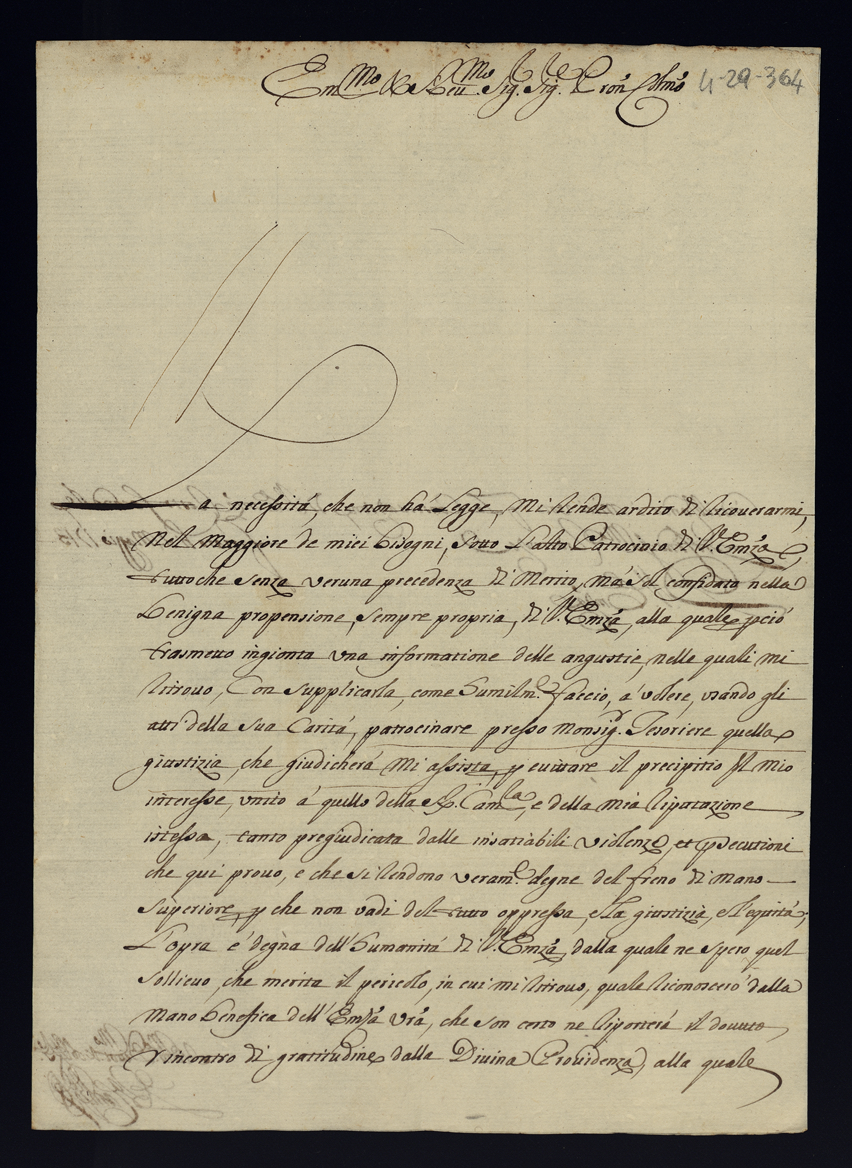 Em.mo e Reu.mo Sig. Sig. Pron Colmo 4-29-364
La necessità, che non hà Legge, mi rende ardito di ricouerarmi,
nel Maggiore de miei bisogni, sotto l'alto Patrocinio di V. Emza,
tutto che senza veruna precedenza di Merito, mà sol confidato nella
benigna propensione, sempre propria, di V. Emza, alla quale pciò
trasmetto ingionta una informatione delle angustie, nelle quali mi
ritrouo, con supplicarla, come humilm.e faccio, à volere, usando gli
atti della sua Carità, patrocinare presso Monsig.r Tesoriere quella
giustizia, che giudicherà mi assista, p euitare il precipitio del mio
interesse, unito à quello della R. Cam.ra, e della mia riputazione
istessa, tanto pregiudicata dalle insatiabili violenze, et psecutioni
che qui prouo, e che si rendono veram.e degne del freno di mano
superiore, p che non vadi del tutto oppressa, e la giustizia, e l'equità;
L'opra è degna dell'humanità di V. Emza, dalla quale ne spero quel
sollieuo, che merita il pericolo, in cui mi ritrouo, quale riconoscerò dalla
mano benefica dell'Emza Vra, che son certo ne riporterà il douuto
rincontro di gratitudine dalla Diuina Prouidenza, alla quale